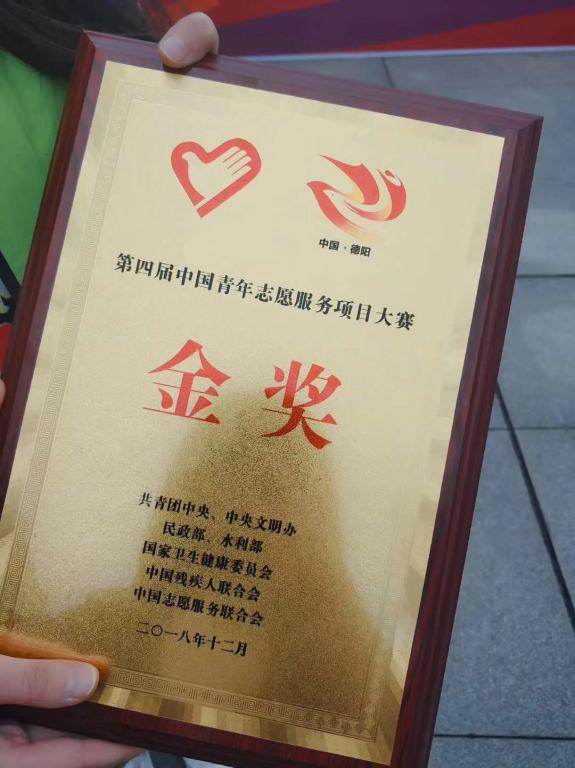 中国·德阳
第四届中国青年志愿服务项目大赛
金奖
共青团中央、中央文明办
民政部、水利部
国家卫生健康委员会
中国残疾人联合会
中国志愿服务联合会
二〇一八年十二月